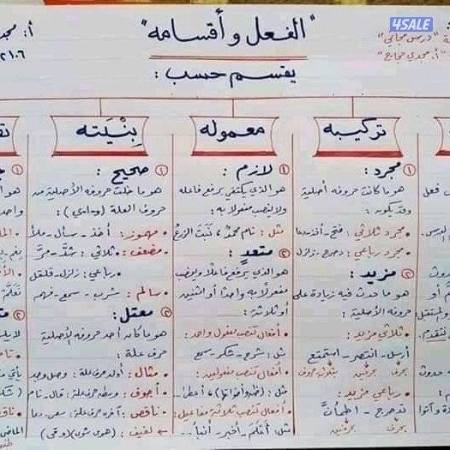 4SALE
"الفعل وأقسامه"
يقسم حسب :
"درس مجاني"
"أ. مجدي حجاج"
تركيبه
① مجرد :
هو ما كانت حروفه أصلية
وقد يكون :
• مجرد ثلاثي : فتح - أخذ - دعا
• مجرد رباعي : دحرج - زلزل
② مزيد :
هو ما حدث فيه زيادة على
حروفه الأصلية :
• ثلاثي مزيد :
أرسل - انتصر - استمتع
بحرف بحرفين بثلاثة حروف
• رباعي مزيد :
تدحرج - اطمأنَّ
بحرف بحرفين
معموله
① لازم :
هو الذي يكتفي برفع فاعله
ولا ينصب مفعولا به
مثل : نام محمدٌ ، نَبَتَ الزرعُ
② متعدٍ :
هو الذي يرفع فاعلًا وينصب
مفعولًا به واحدًا أو اثنين
أو ثلاثة :
• أفعال تنصب مفعول واحد :
مثل : شرح - شكر - سمع
• أفعال تنصب مفعولين :
• أفعال تنصب ثلاثة مفاعيل :
مثل : أعْلَمَ - أخبر - أنبأ...
بِنْيَته
① صحيح :
هو ما خلت حروفه الأصلية من
حروف العلة (و-ا-ي) :
• مهموز : أخذ - سأل - ملأ
• مضعف : • ثلاثي : شدَّ - مرَّ
• رباعي : زلزل - قلقل
• سالم : شرب - سمع - فهم
② معتل :
هو ما كان أحد حروفه الأصلية
حرف علة :
• مثال : أوله حرف علة : وصل وجد
• أجوف : وسطه حرف علة : قال - نام
• ناقص : آخره حرف علة : سعى - دعا
• لفيف :